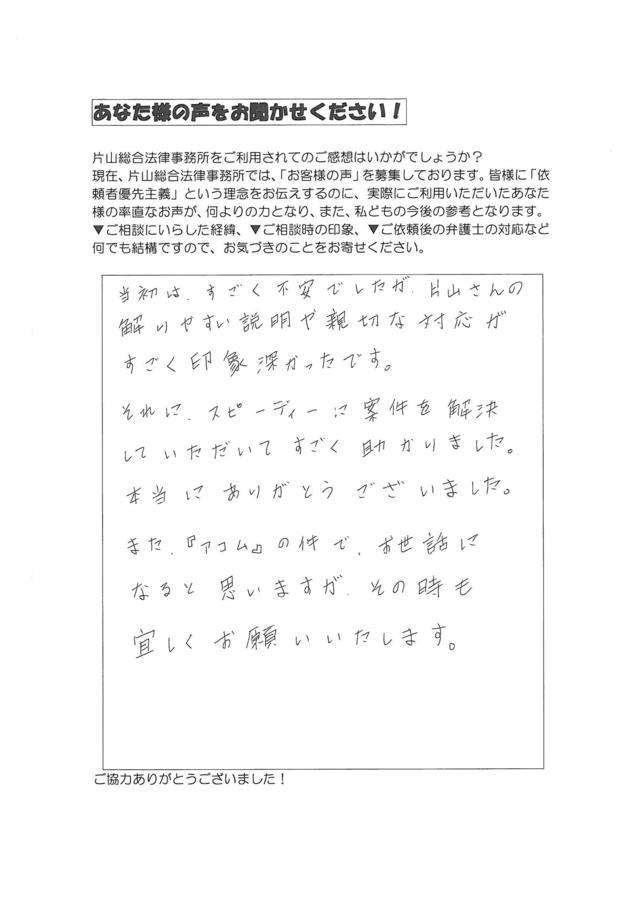 あなた様の声をお聞かせください！
片山総合法律事務所をご利用されてのご感想はいかがでしょうか？
現在、片山総合法律事務所では、「お客様の声」を募集しております。皆様に「依
頼者優先主義」という理念をお伝えするのに、実際にご利用いただいたあなた
様の率直なお声が、何よりの力となり、また、私どもの今後の参考となります。
▼ご相談にいらした経緯、▼ご相談時の印象、▼ご依頼後の弁護士の対応など
何でも結構ですので、お気づきのことをお寄せください。
当初は、すごく不安でしたが、片山さんの
解りやすい説明や親切な対応が
すごく印象深かったです。
それに、スピーディーに案件を解決
していただいてすごく助かりました。
本当にありがとうございました。
また、『アコム』の件で、お世話に
なると思いますが、その時も
宜しくお願いいたします。
ご協力ありがとうございました！